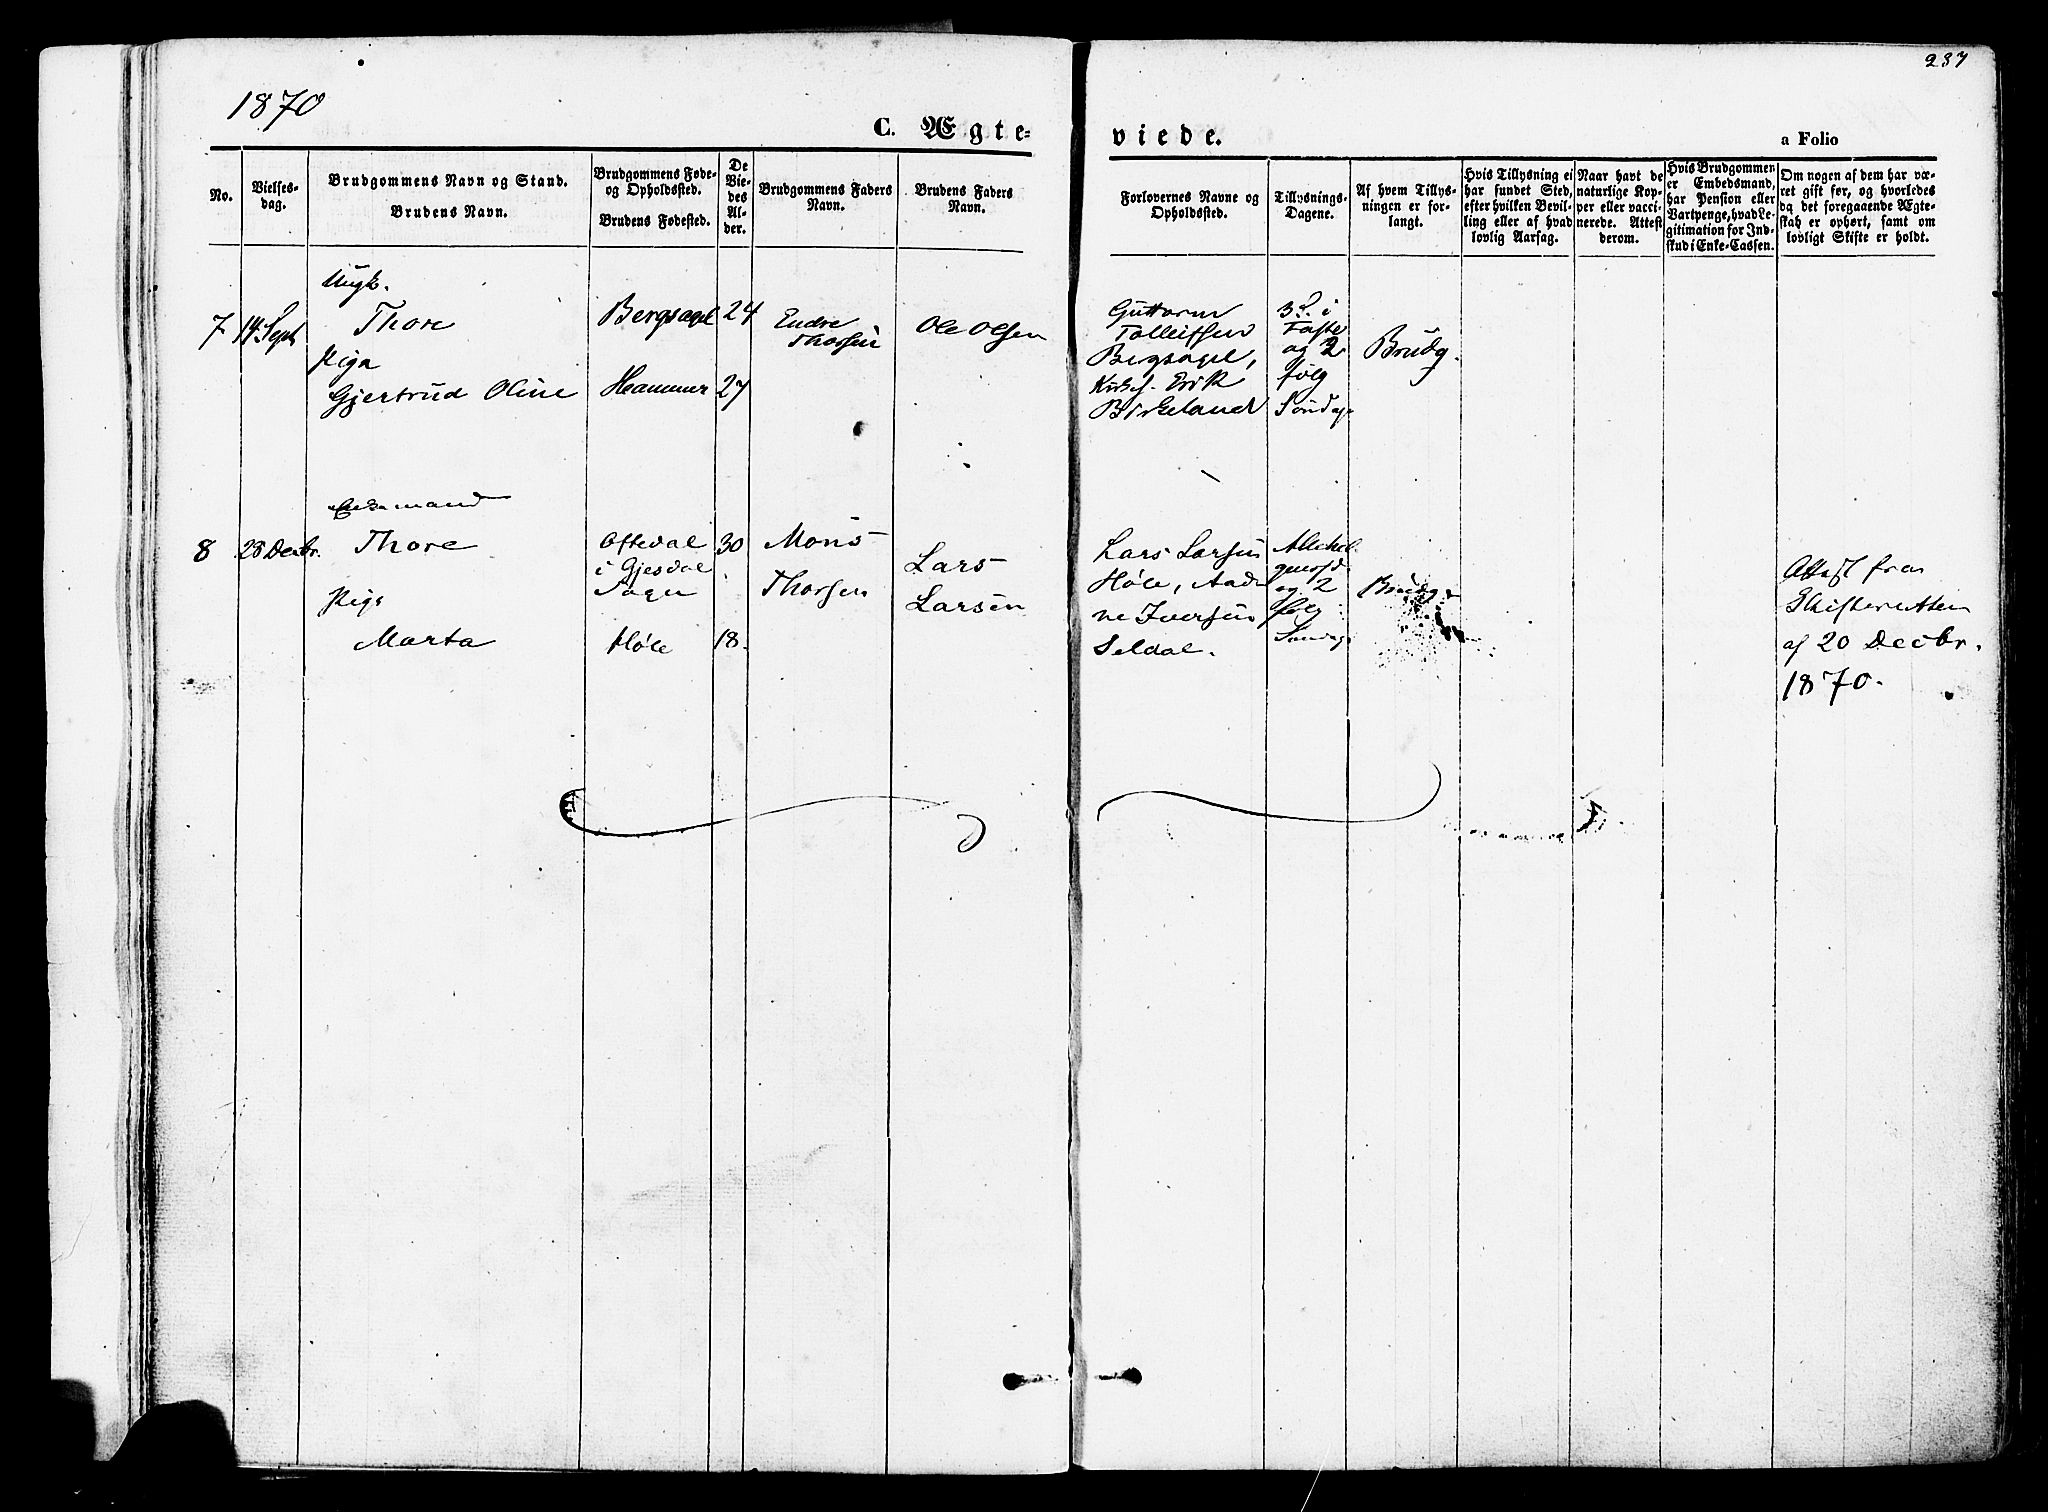 1870
237
C. Ægte-
viede.
a Folio
No.
Vielses-
dag.
Brudgommens Navn og Stand.
Brudens Navn.
Brudgommens Føde-
og Opholdssted.
Brudens Fødested.
De
Vie-
des
Al-
der.
Brudgommens Faders
Navn.
Brudens Faders
Navn.
Forlovernes Navne og
Opholdssted.
Tillysnings-
Dagene.
Af hvem Tillys-
ningen er for-
langt.
Hvis Tillysning ei
har fundet Sted,
efter hvilken Bevil-
ling eller af hvad
lovlig Aarsag.
Naar havt de
naturlige Kop-
per eller vacci-
nerede. Attest
derom.
Hvis Brudgommen
er Embedsmand,
har Pension eller
Vartpenge, hvad Le-
gitimation for Ind-
skud i Enke-Cassen.
Om nogen af dem har væ-
ret gift før, og hvorledes
da det foregaaende Ægte-
skab er ophørt, samt om
lovligt Skifte er holdt.
7
14 Sept
Ungk.
Thore
Pige
Gjertrud Oline
Bergsagel
Hammer
24
27
Endre
Thorsen
Ole Olsen
Guttorm
Tolleifsen
Bergsagel,
Kirkes. Erik
Birkeland
3 S. i
Faste
og 2
følg
Søndage
Brudg.
8
28 Decbr.
Enkemand
Thore
Pige
Marta
Oftedal
i Gjesdal
Sogn
Høle
30
18.
Mons
Thorsen
Lars
Larsen
Lars Larsen
Høle, Aad-
ne Iversen
Seldal.
Allehel-
gensd.
og 2
følg
Søndage
Brudg.
Attest fra
Skifteretten
af 20 Decbr.
1870.